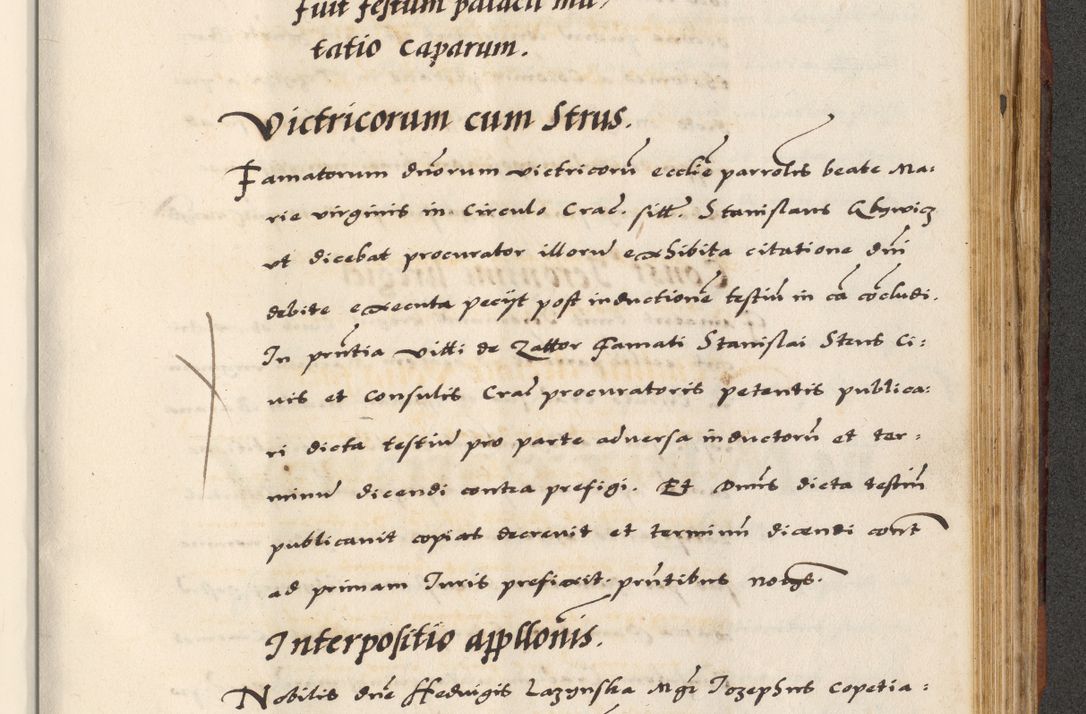 fuit festum palacii mu/
tatio caparum.
Victricorum cum Strus.
Famatorum dnorum victricoru ecclie parrolis beate Ma:
rie virginis in Circulo Crac. sitt. Stanislaus
ut dicebat procurator illoru exhibita citatione dni
debite executa peciit post inductione testiu in ca cocludi.
In prntia Vitti de Zattor Famati Stanislai Strus Ci:
uis et Consulis Crac procuratoris petentis publica:
ri dicta testiu pro parte adversa inductoru et ter:
minu dicendi contra prefigi. Et Dnus dicta testiu
publicauit copias decreuit et terminu dicendi cont
ad primam Juris prefixit. prntibus notgs.
Interpositio appllonis.
Nobilis dne Hedvigis Lazynska Mgr Jozephus Copetia: